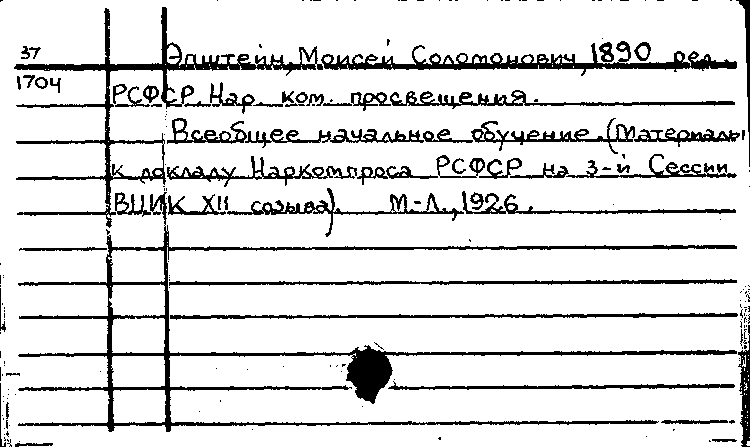 37
Эпштейн, Моисей Соломонович, 1890 ред.
1704
РСФСР. Нар. ком. просвещения.
Всеобщее начальное обучение. (Материалы
к докладу Наркомпроса РСФСР на 3-й Сессии
ВЦИК XII созыва). М.-Л., 1926.